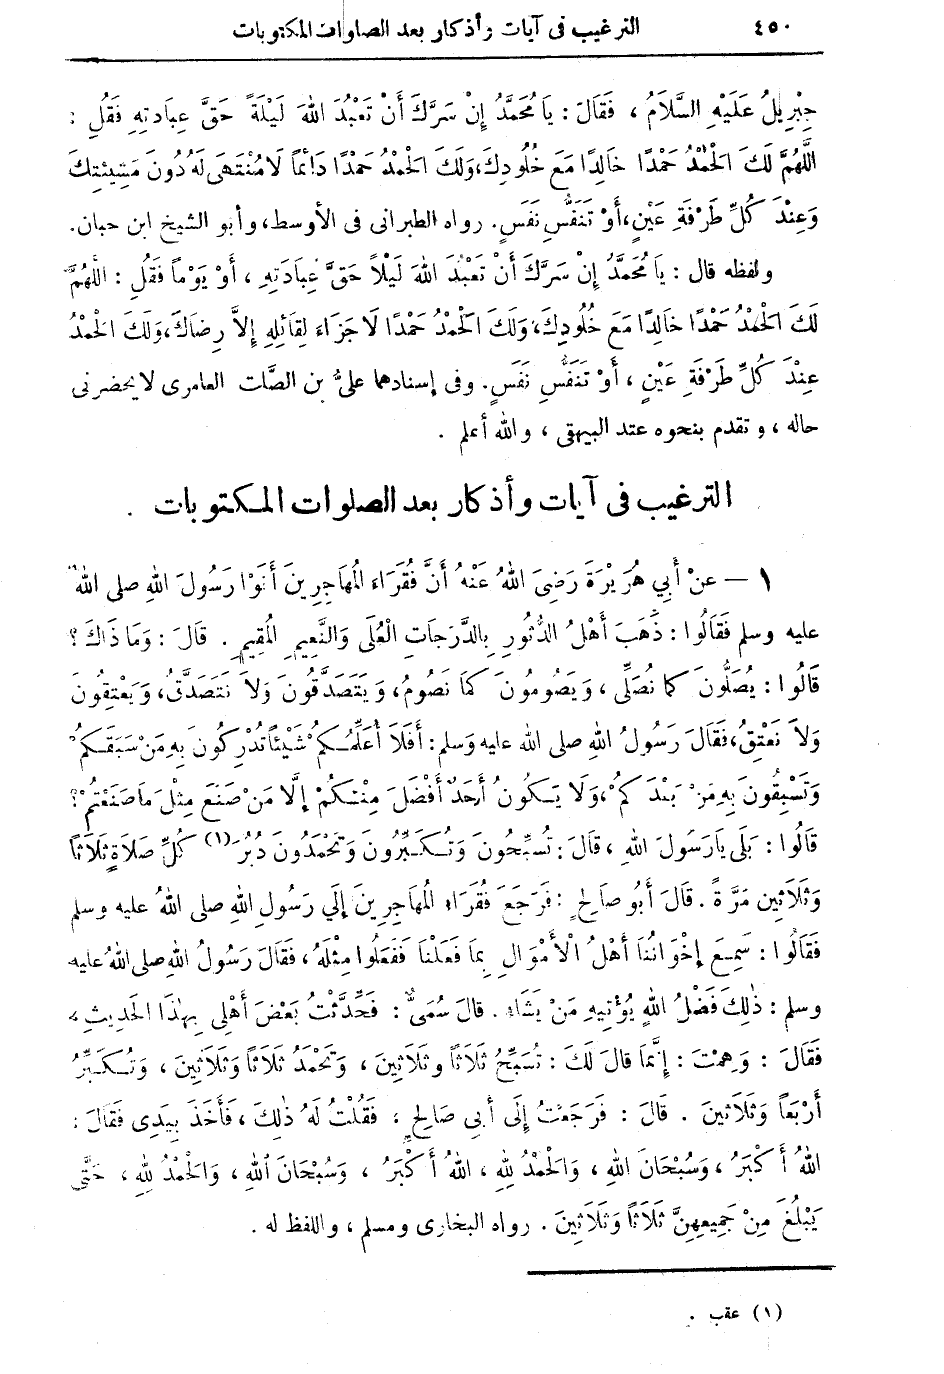 ٤٥٠ الترغيب فى آيات وأذكار بعد الصلوات المكتوبات
جِبْرِيلُ عَلَيْهِ السَّلَامُ ، فَقَالَ : يَا مُحَمَّدُ إِنْ سَرَّكَ أَنْ تَعْبُدَ اللهَ لَيْلَةً حَقَّ عِبَادَتِهِ فَقُلِ :
اللَّهُمَّ لَكَ الْحَمْدُ حَمْدًا خَالِدًا مَعَ خُلُودِكَ، وَلَكَ الْحَمْدُ حَمْدًا دَائِماً لَا مُنْتَهَى لَهُ دُونَ مَشِيئَتِكَ
وَعِنْدَ كُلِّ طَرْفَةِ عَيْنٍ، أَوْ تَنَفُّسِ نَفَسٍ. رواه الطبرانى فى الأوسط، وأبو الشيخ ابن حبان.
ولفظه قال : يَا مُحَمَّدُ إِنْ سَرَّكَ أَنْ تَعْبُدَ اللهَ لَيْلاً حَقَّ عِبَادَتِهِ ، أَوْ يَوْماً فَقُلِ : اللَّهُمَّ
لَكَ الْحَمْدُ حَمْدًا خَالِدًا مَعَ خُلُودِكَ، وَلَكَ الْحَمْدُ حَمْدًا لَا جَزَاءَ لِقَائِلِهِ إِلاَّ رِضَاكَ، وَلَكَ الْحَمْدُ
عِنْدَ كُلِّ طَرْفَةِ عَيْنٍ ، أَوْ تَنَفُّسِ نَفَسٍ. وفى إسنادهما علىُّ بن الصَّلت العامرى لا يحضرنى
حاله ، و تقدم بنحوه عند البيهقى ، والله أعلم .
الترغيب فى آيات وأذكار بعد الصلوات المكتوبات .
١ — عنْ أَبِي هُرَيْرَةَ رَضِىَ اللهُ عَنْهُ أَنَّ فُقَرَاءَ الْمُهَاجِرِينَ أَتَوْا رَسُولَ اللهِ صلى الله
عليه وسلم فَقَالُوا : ذَهَبَ أَهْلُ الدُّثُورِ بِالدَّرَجَاتِ الْعُلَى وَالنَّعِيمِ الْمُقِيمِ . قَالَ : وَمَا ذَاكَ ؟
قَالُوا : يُصَلُّونَ كَمَا نُصَلِّى ، وَيَصُومُونَ كَمَا نَصُومُ، وَيَتَصَدَّقُونَ وَلَا نَتَصَدَّقُ، وَيَعْتِقُونَ
وَلاَ نَعْتِقُ، فَقَالَ رَسُولُ اللهِ صلى الله عليه وَسلم : أَفَلَا أُعَلِّمُكُمْ شَيْئاً تُدْرِكُونَ بِهِ مَنْ سَبَقَكُمْ
وَتَسْبِقُونَ بِهِ مَنْ بَعْدَكُمْ، وَلَا يَكُونُ أَحَدٌ أَفْضَلَ مِنْكُمْ إِلَّا مَنْ صَنَعَ مِثْلَ مَا صَنَعْتُمْ ؟
قَالُوا : بَلَى يَا رَسُولَ اللهِ ، قَالَ : تُسَبِّحُونَ وَتُكَبِّرُونَ وَتَحْمَدُونَ دُبُرَ (١) كُلِّ صَلَاةٍ ثَلَاثاً
وَثَلَاثِينَ مَرَّةً . قَالَ أَبُو صَالِحٍ : فَرَجَعَ فُقَرَاءُ الْمُهَاجِرِينَ إِلَى رَسُولِ اللهِ صلى اللهُ عليه وسلم
فَقَالُوا : سَمِعَ إِخْوَانُنَا أَهْلُ الْأَمْوَالِ بِمَا فَعَلْنَا فَفَعَلُوا مِثْلَهُ ، فَقَالَ رَسُولُ اللهِ صلى اللهُ عليه
وسلم : ذٰلِكَ فَضْلُ اللهِ يُؤْتِيهِ مَنْ يَشَاءُ . قَالَ سُمَىٌّ : فَحَدَّثْتُ بَعْضَ أَهْلِى بِهٰذَا الْحَدِيثِ ،
فَقَالَ : وَهِمْتَ : إِنَّمَا قَالَ لَكَ : تُسَبِّحُ ثَلَاثاً وثَلَاثِينَ ، وَتَحْمَدُ ثَلَاثاً وَثَلَاثِينَ ، وَتُكَبِّرُ
أَرْبَعاً وَثَلَاثِينَ . قَالَ : فَرَجَعْتُ إِلَى أَبِى صَالِحٍ ، فَقُلْتُ لَهُ ذٰلِكَ ، فَأَخَذَ بِيَدِى فَقَالَ :
اللهُ أَكْبَرُ ، وَسُبْحَانَ اللهِ ، وَالْحَمْدُ لِلهِ ، اللهُ أَكْبَرُ ، وَسُبْحَانَ اللهِ ، وَالْحَمْدُ لِلهِ ، حَتَّى
يَبْلُغَ مِنْ جَمِيعِهِنَّ ثَلَاثاً وَثَلَاثِينَ . رواه البخارى ومسلم ، واللفظ له .
(١) عقب .